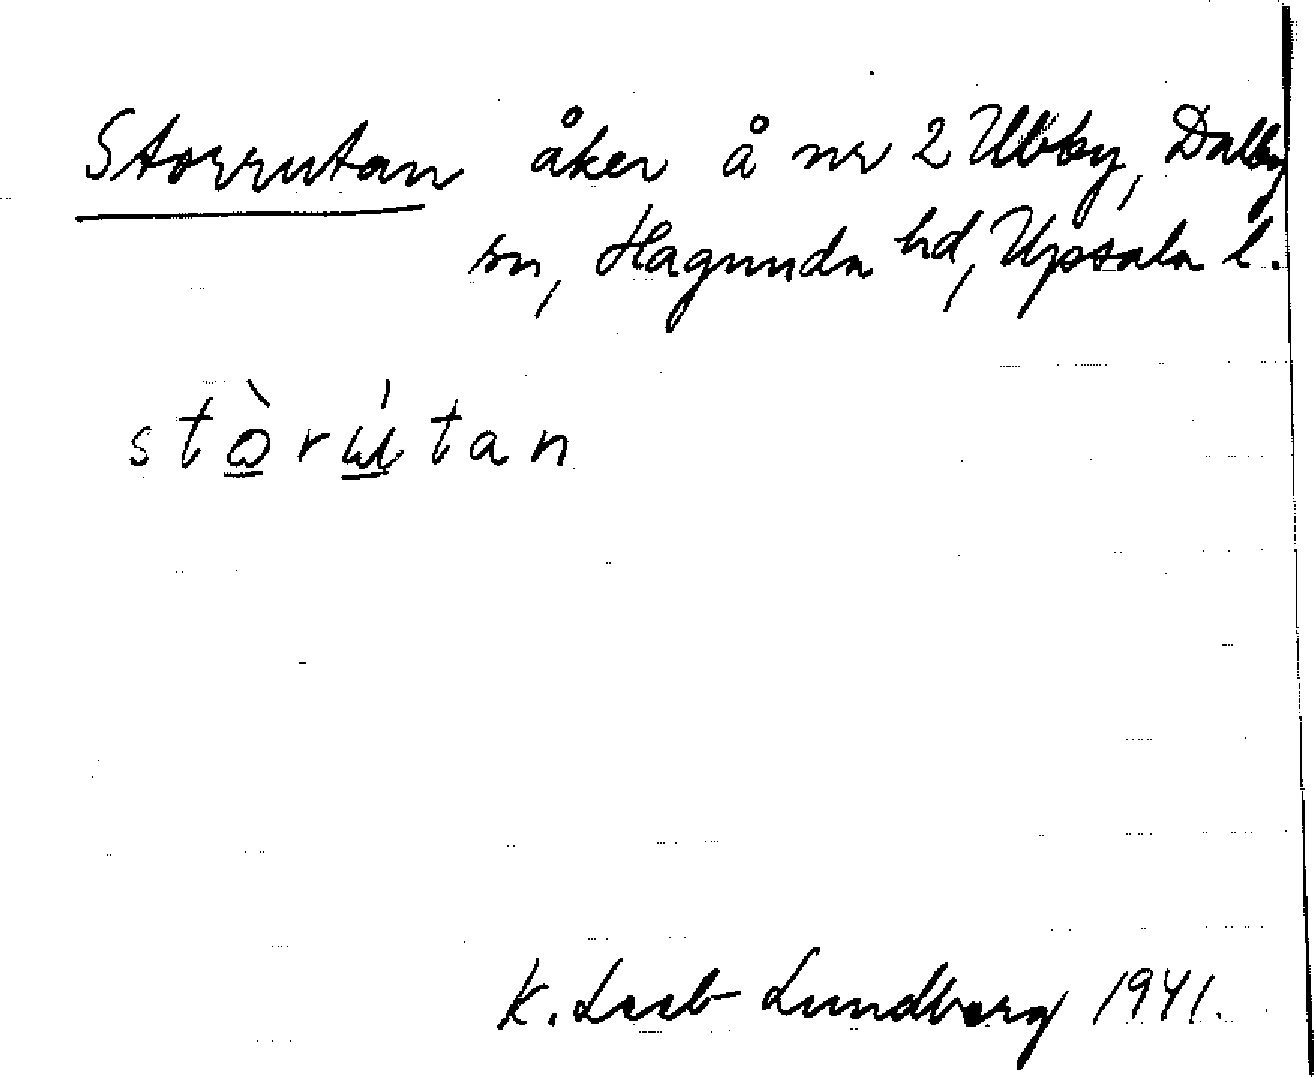 Storrutan åker å nr 2 Ubby, Dalby
sn, Hagunda hd, Upsala l.
stò̱rú̱tan
K. Leeb-Lundberg 1941.